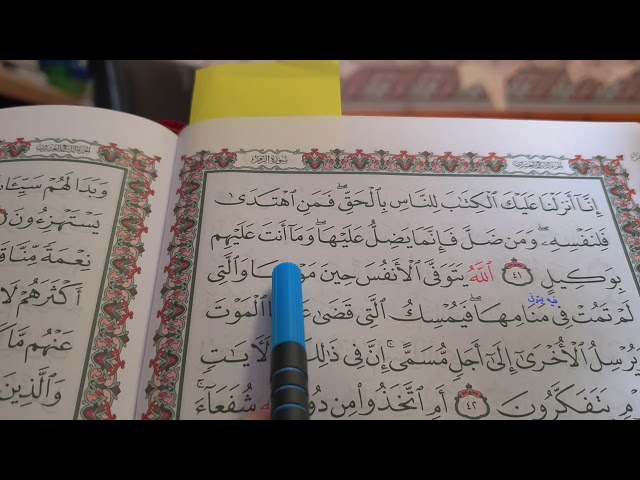 سورة الزمر
إِنَّآ أَنزَلْنَا عَلَيْكَ ٱلْكِتَٰبَ لِلنَّاسِ بِٱلْحَقِّ ۖ فَمَنِ ٱهْتَدَىٰ
فَلِنَفْسِهِۦ ۖ وَمَن ضَلَّ فَإِنَّمَا يَضِلُّ عَلَيْهَا ۖ وَمَآ أَنتَ عَلَيْهِم
بِوَكِيلٍ ٤١ ٱللَّهُ يَتَوَفَّى ٱلْأَنفُسَ حِينَ وَٱلَّتِى
لَمْ تَمُتْ فِى مَنَامِهَا ۖ فَيُمْسِكُ ٱلَّتِى قَضَىٰ ٱلْمَوْتَ
يُرْسِلُ ٱلْأُخْرَىٰٓ إِلَىٰٓ أَجَلٍ مُّسَمًّى ۚ إِنَّ فِى ذَٰلِكَ
يَتَفَكَّرُونَ ٤٢ أَمِ ٱتَّخَذُوا۟ مِن شُفَعَآءَ ۚ
وَبَدَا لَهُمْ
يَسْتَهْزِءُونَ
نِعْمَةً مِّنَّا
أَكْثَرَهُمْ لَا
عَنْهُم مَّا
وَٱلَّذِينَ